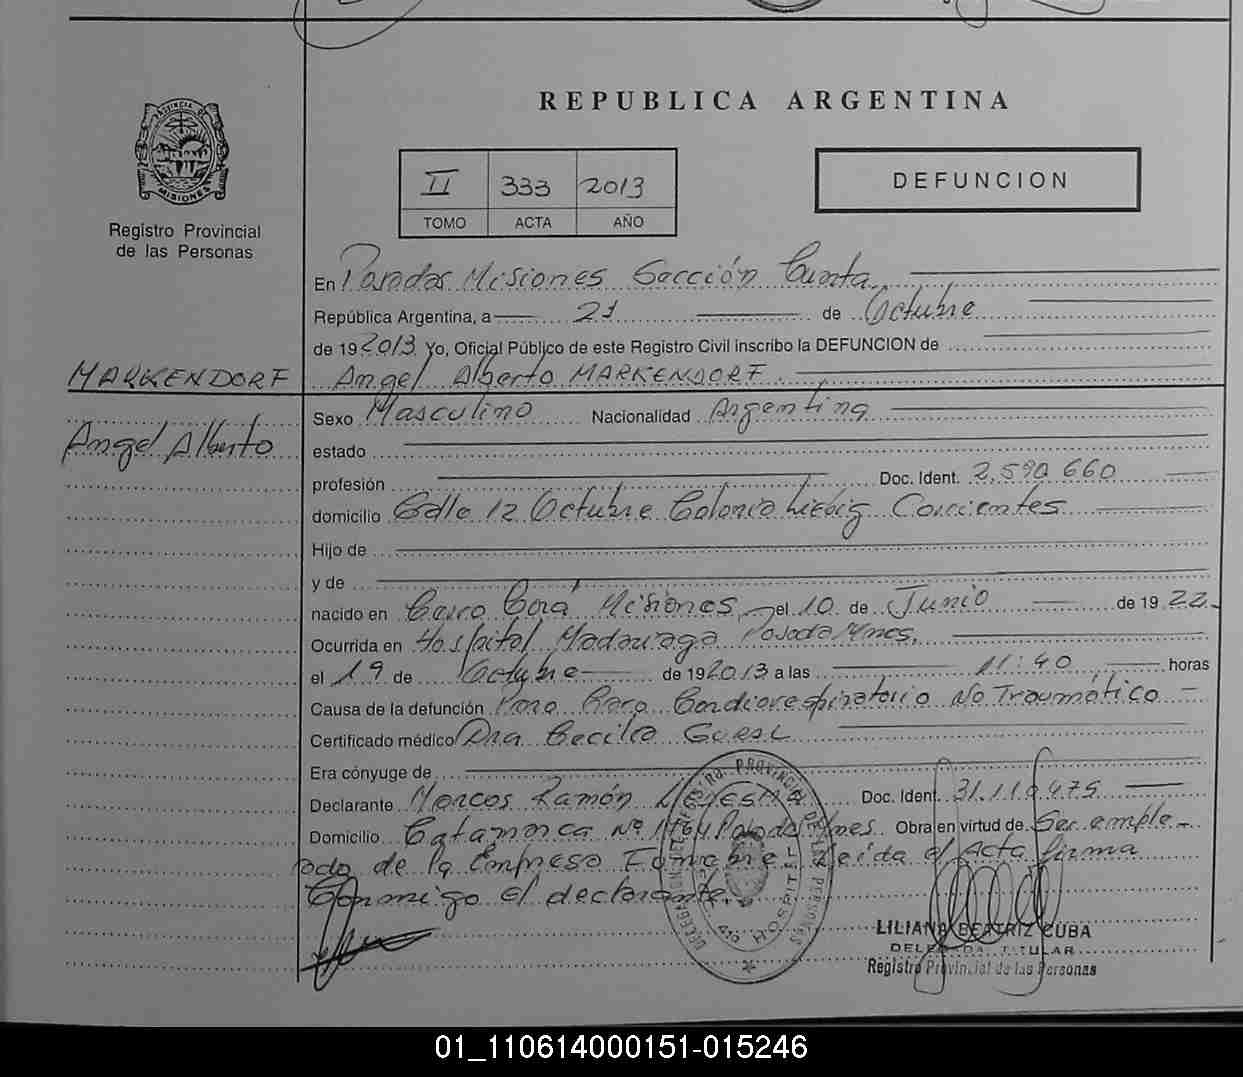 REPUBLICA ARGENTINA
PROVINCIA DE
MISIONES
Registro Provincial
de las Personas
II 333 2013
TOMO ACTA AÑO
DEFUNCION
En Posadas Misiones Sección Cuarta
República Argentina, a 21 de Octubre
de 19 2013 Yo, Oficial Público de este Registro Civil inscribo la DEFUNCION de
MARKENDORF
Angel Alberto
Angel Alberto MARKENDORF
Sexo Masculino Nacionalidad Argentina
estado
profesión Doc. Ident. 2.590.660
domicilio Calle 12 Octubre Colonia Liebig Corrientes
Hijo de
y de
nacido en Cerro Corá Misiones el 10 de Junio de 19 22
Ocurrida en Hospital Madariaga Posadas Mnes.
el 19 de Octubre de 19 2013 a las 11:40 horas
Causa de la defunción Paro Cardiorespiratorio No Traumático
Certificado médico Dra Cecilia
Era cónyuge de
Declarante Marcos Ramón Doc. Ident. 31.110.475
Domicilio Catamarca Nº 1764 Posadas Mnes Obra en virtud de Ser emple-
ado de la Empresa Fúnebre Leida el Acta firma
Conmigo el declarante
HOSPITAL
LILIANA BEATRIZ CUBA
DELEGADA TITULAR
Registro Provincial de las Personas
01_110614000151-015246